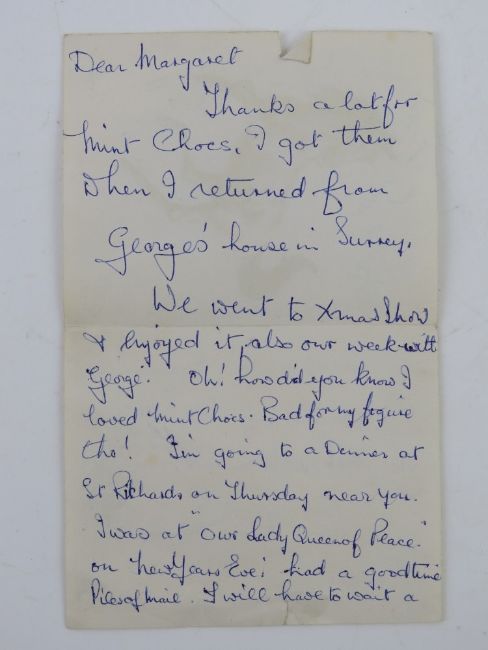 Dear Margaret
Thanks a lot for
Mint Chocs, I got them
when I returned from
George's house in Surrey.
We went to Xmas Show
& enjoyed it, also our week with
George. Oh! how did you know I
loved Mint Chocs. Bad for my figure
tho! I'm going to a Dinner at
St Richards on Thursday near you.
I was at "Our Lady Queen of Peace"
on New Years Eve, had a good time
Piles of mail. I will have to wait a